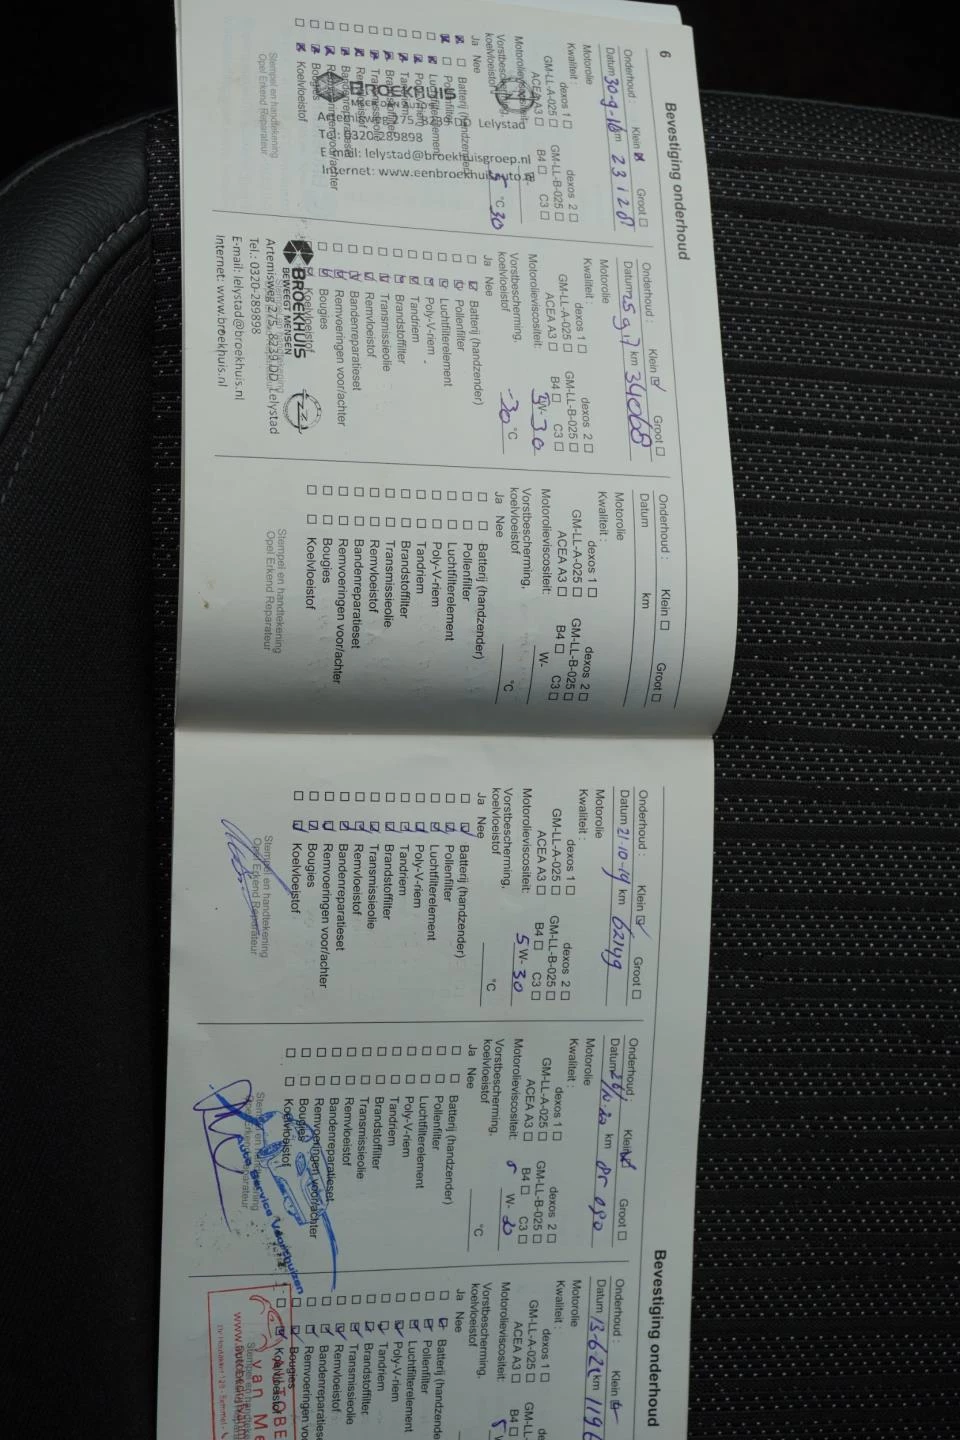 6
Bevestiging onderhoud
Onderhoud : Klein Groot
Datum 30-9-16 km 23128
Motorolie
Kwaliteit : dexos 1 dexos 2
GM-LL-A-025 GM-LL-B-025
ACEA A3 B4 C3
Motorolieviscositeit: 5 W- 30
Vorstbescherming, koelvloeistof °C
Ja Nee
Batterij (handzender)
Pollenfilter
Luchtfilterelement
Poly-V-riem
Tandriem
Brandstoffilter
Transmissieolie
Remvloeistof
Bandenreparatieset
Remvoeringen voor/achter
Bougies
Koelvloeistof
Stempel en handtekening
Opel Erkend Reparateur
BROEKHUIS
Artemisweg 275, 8239 DD Lelystad
Tel: 0320-289898
E-mail: lelystad@broekhuisgroep.nl
Internet: www.eenbroekhuisauto.nl
Onderhoud : Klein Groot
Datum 25 9 17 km 34068
Motorolie
Kwaliteit : dexos 1 dexos 2
GM-LL-A-025 GM-LL-B-025
ACEA A3 B4 C3
Motorolieviscositeit: 5W- 30
Vorstbescherming,
koelvloeistof -30 °C
Ja Nee
Batterij (handzender)
Pollenfilter
Luchtfilterelement
Poly-V-riem
Tandriem
Brandstoffilter
Transmissieolie
Remvloeistof
Bandenreparatieset
Remvoeringen voor/achter
Bougies
Koelvloeistof
BROEKHUIS
BEWEEGT MENSEN
Artemisweg 275, 8239 DD Lelystad
Tel.: 0320-289898
E-mail: lelystad@broekhuis.nl
Internet: www.broekhuis.nl
Onderhoud : Klein Groot
Datum km
Motorolie
Kwaliteit : dexos 1 dexos 2
GM-LL-A-025 GM-LL-B-025
ACEA A3 B4 C3
Motorolieviscositeit: W-
Vorstbescherming,
koelvloeistof °C
Ja Nee
Batterij (handzender)
Pollenfilter
Luchtfilterelement
Poly-V-riem
Tandriem
Brandstoffilter
Transmissieolie
Remvloeistof
Bandenreparatieset
Remvoeringen voor/achter
Bougies
Koelvloeistof
Stempel en handtekening
Opel Erkend Reparateur
Bevestiging onderhoud
Onderhoud : Klein Groot
Datum 21-10-19 km 62149
Motorolie
Kwaliteit : dexos 1 dexos 2
GM-LL-A-025 GM-LL-B-025
ACEA A3 B4 C3
Motorolieviscositeit: 5 W- 30
Vorstbescherming,
koelvloeistof °C
Ja Nee
Batterij (handzender)
Pollenfilter
Luchtfilterelement
Poly-V-riem
Tandriem
Brandstoffilter
Transmissieolie
Remvloeistof
Bandenreparatieset
Remvoeringen voor/achter
Bougies
Koelvloeistof
Stempel en handtekening
Opel Erkend Reparateur
Onderhoud : Klein Groot
Datum km
Motorolie
Kwaliteit : dexos 1 dexos 2
GM-LL-A-025 GM-LL-B-025
ACEA A3 B4 C3
Motorolieviscositeit: W-
Vorstbescherming,
koelvloeistof °C
Ja Nee
Batterij (handzender)
Pollenfilter
Luchtfilterelement
Poly-V-riem
Tandriem
Brandstoffilter
Transmissieolie
Remvloeistof
Bandenreparatieset
Remvoeringen voor/achter
Bougies
Koelvloeistof
Auto Service Voorthuizen
Onderhoud : Klein
Datum 13-6-22 km
Motorolie
Kwaliteit : dexos 1
GM-LL-A-025
ACEA A3 B4
Motorolieviscositeit: 5
Vorstbescherming,
koelvloeistof
Ja Nee
Batterij (handzende
Pollenfilter
Luchtfilterelement
Poly-V-riem
Tandriem
Brandstoffilter
Transmissieolie
Remvloeistof
Bandenreparatiese
Remvoeringen vo
Bougies
Koelvloeistof
AUTOBE
van Me